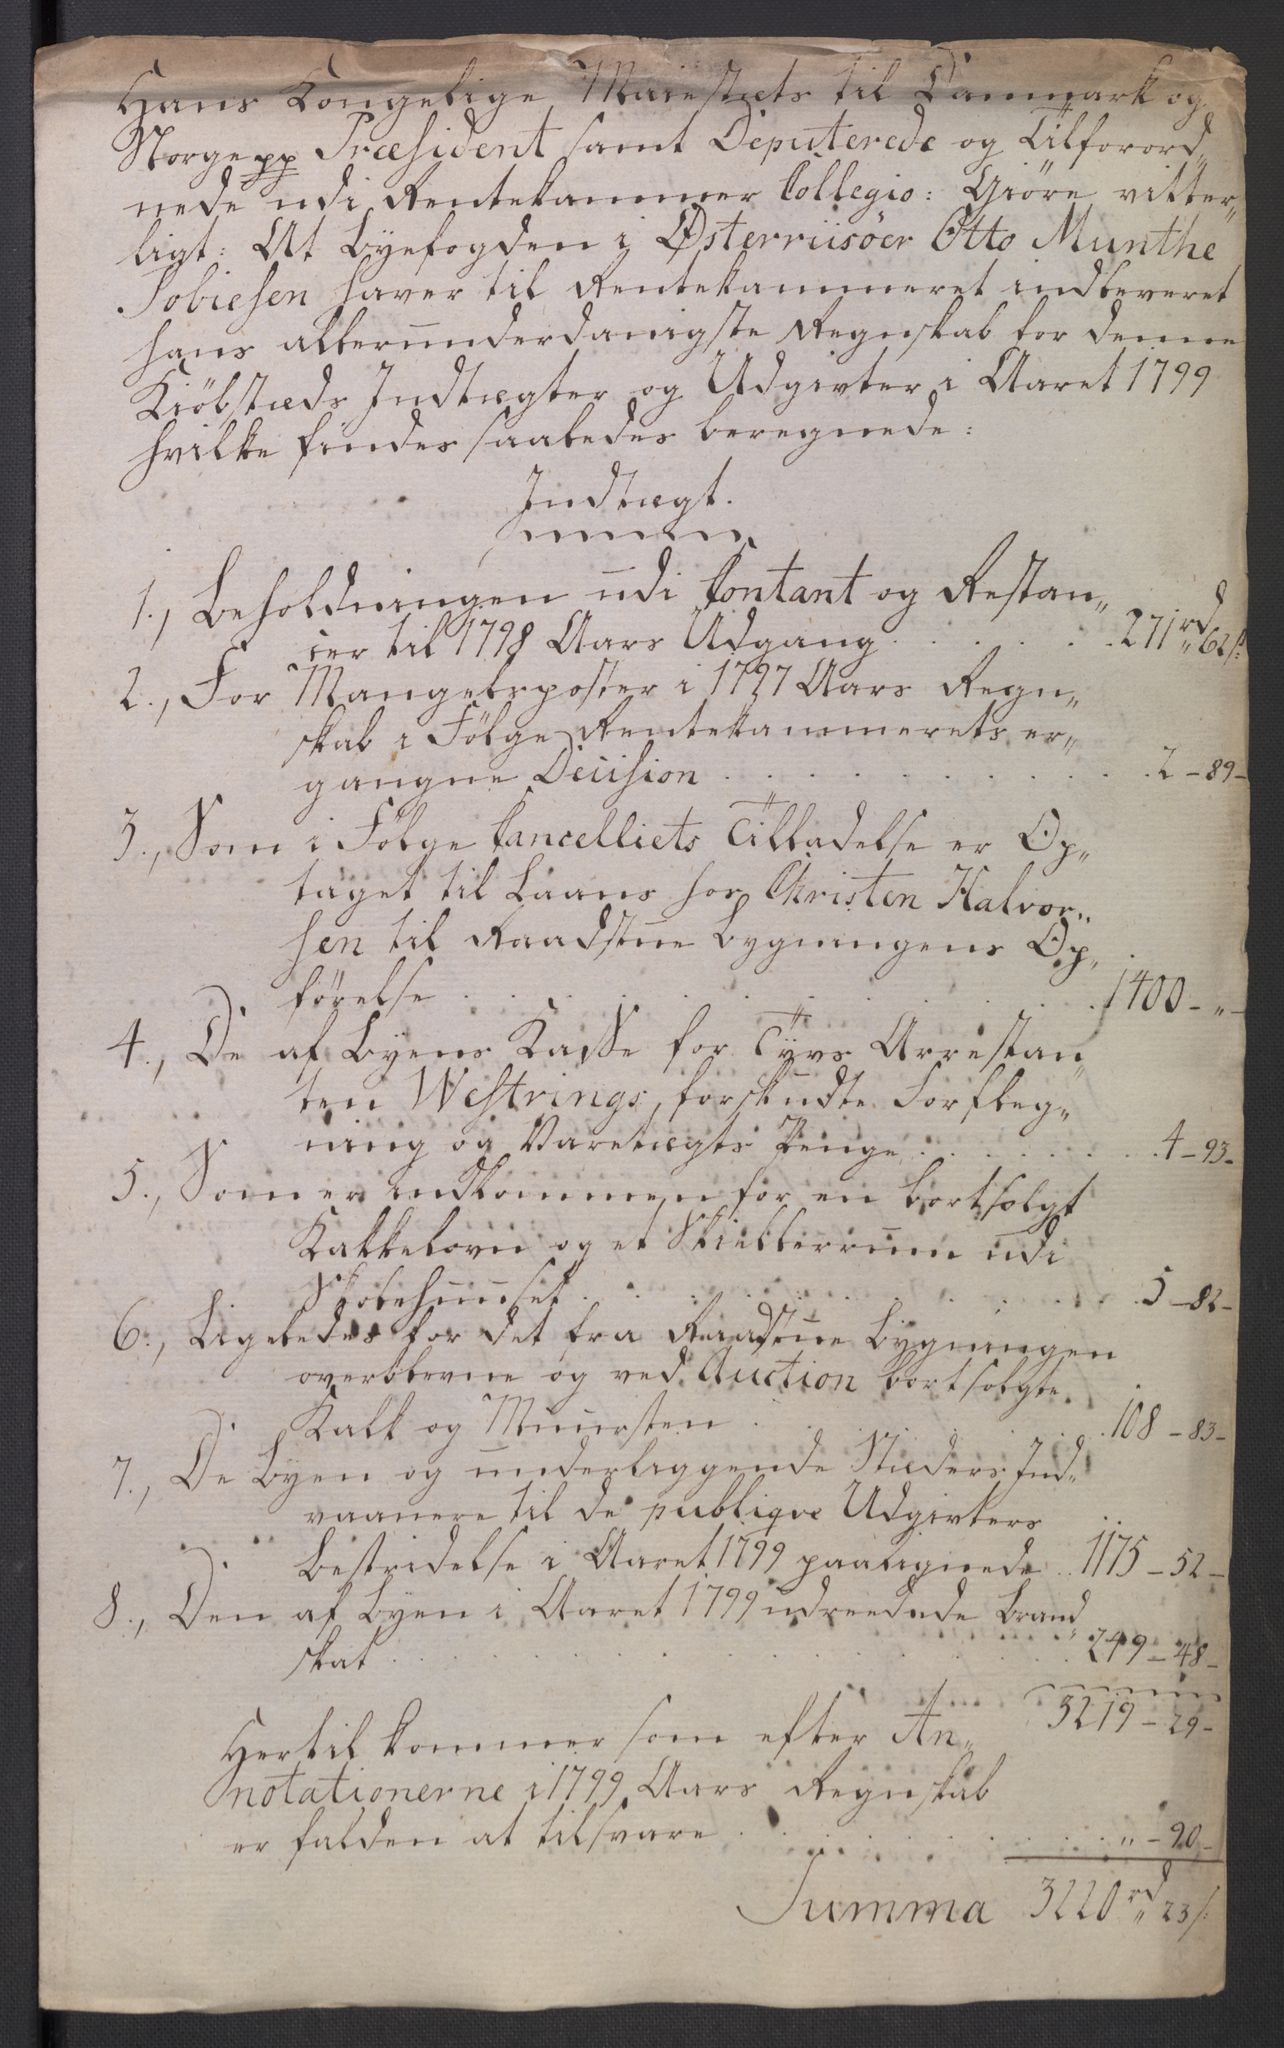 Hans Kongelige Maiestæts til Danmark og
Norge pp Præsident samt Deputerede og Tilforord„
nede udi Rentekammer Collegio: Giöre vitter„
ligt: At Byefogden i Østerriisöer Otto Munthe
Tobiesen haver til Rentekammeret indleveret
hans allerunderdanigste Regnskab for denne
Kiöbstæds Indtægter og Udgivter i Aaret 1799
hvilke findes saaledes beregnede:
Indtægt.
1., Beholdningen udi Contant og Restan„
cer til 1798 Aars Udgang . . . . . 271 rd „ 62 s:
2., For Mangelsposter i 1797 Aars Regn„
skab i Fölge Rentekammerets er„
gangne Decision . . . . . . . . 2 – 89 –
3., Som i Fölge Cancelliets Tilladelse er Op„
taget til Laans hos Christen Halvor„
sen til Raadstue bygningens Op„
förelse . . . . . . . . . . 1400 – „ –
4., De af Byens Kasse for Tyvs Arrestan„
ten Westrings, forskudte Forfleg„
ning og Varetægts Penge . . . . . . 4 – 93 –
5., Som er indkommen for en bortsolgt
Kakkelovn og et Skillerrum udi
Skolehuuset . . . . . . . . . 5 – 82 –
6., Ligeledes for det fra Raadstue bygningen
overblevne og ved Auction bortsolgte
Kalk og Muursten . . . . . 108 – 83 –
7., De Byen og underliggende Stæders Ind„
vaanere til de publiqve Udgivters
Bestridelse i Aaret 1799 paalignede . . 1175 – 52 –
8., Den af Byen i Aaret 1799 udreedede Brand„
skat . . . . . . . . . . 249 – 48 –
3219 – 29 –
Hertil kommer som efter An„
notationerne i 1799 Aars Regnskab
er falden at tilsvare . . . . . . . „ – 90 –
Summa 3220 rd „ 23 s: